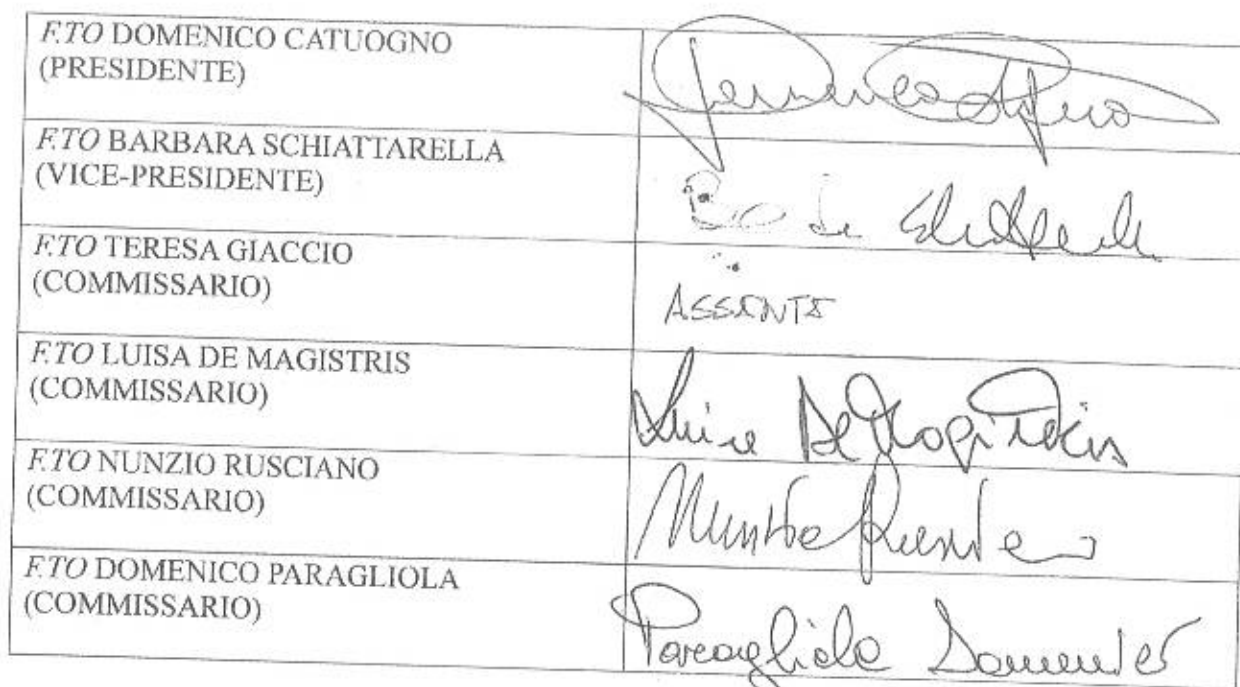 F.TO DOMENICO CATUOGNO
(PRESIDENTE)
F.TO BARBARA SCHIATTARELLA
(VICE-PRESIDENTE)
F.TO TERESA GIACCIO
(COMMISSARIO)
ASSENTE
F.TO LUISA DE MAGISTRIS
(COMMISSARIO)
Luisa De Magistris
F.TO NUNZIO RUSCIANO
(COMMISSARIO)
F.TO DOMENICO PARAGLIOLA
(COMMISSARIO)
Paragliola Domenico